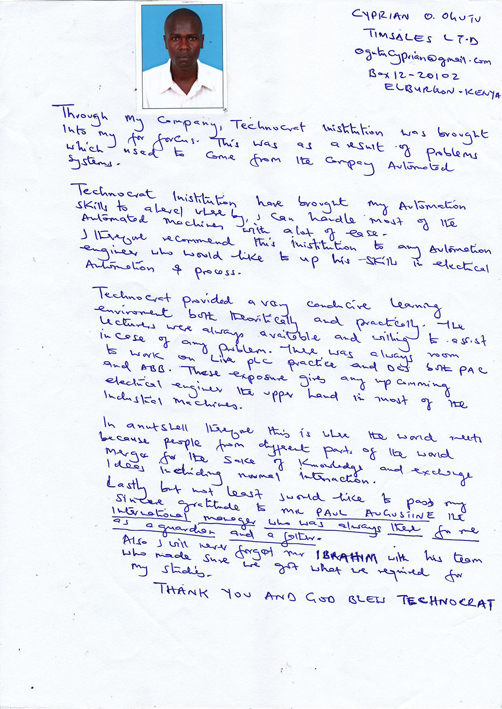 CYPRIAN O. OGUTU
TIMSALES LTD
ogutucyprian@gmail.com
Box 12-20102
ELBURGON-KENYA
Through my Company, Technocrat inistitution was brought
into my for forcus. This was as a result of problems
which used to come from the company Automated
Systems.
Technocrat Inistitution have brought my Automation
skills to a level where by, I can handle most of the
Automated machines with alot of ease.
I therefore recommend this inistitution to any Automation
engineer who would like to up his skills in electrical
Automation & process.
Technocrat provided a very conducive learning
enviroment both theoritically and practically. The
lecturers were always available and willing to assist
incase of any problem. There was always room
to work on live plc practice and DCS both PAC
and ABB. These exposure gives any up comming
electrical engineer the upper hand in most of the
Industrial machines.
In a nutshell therefore this is where the world meets
because people from different parts of the world
merge for the sake of knowledge and exchange
ideas including normal interraction.
Lastly but not least I would like to pass my
sincere gratitude to MR PAUL AUGUSTINE the
International manager who was always there for me
as a guardian and a father.
Also I will never forget mr IBRAHIM with his team
who made sure we got what we required for
my studies.
THANK YOU AND GOD BLESS TECHNOCRAT